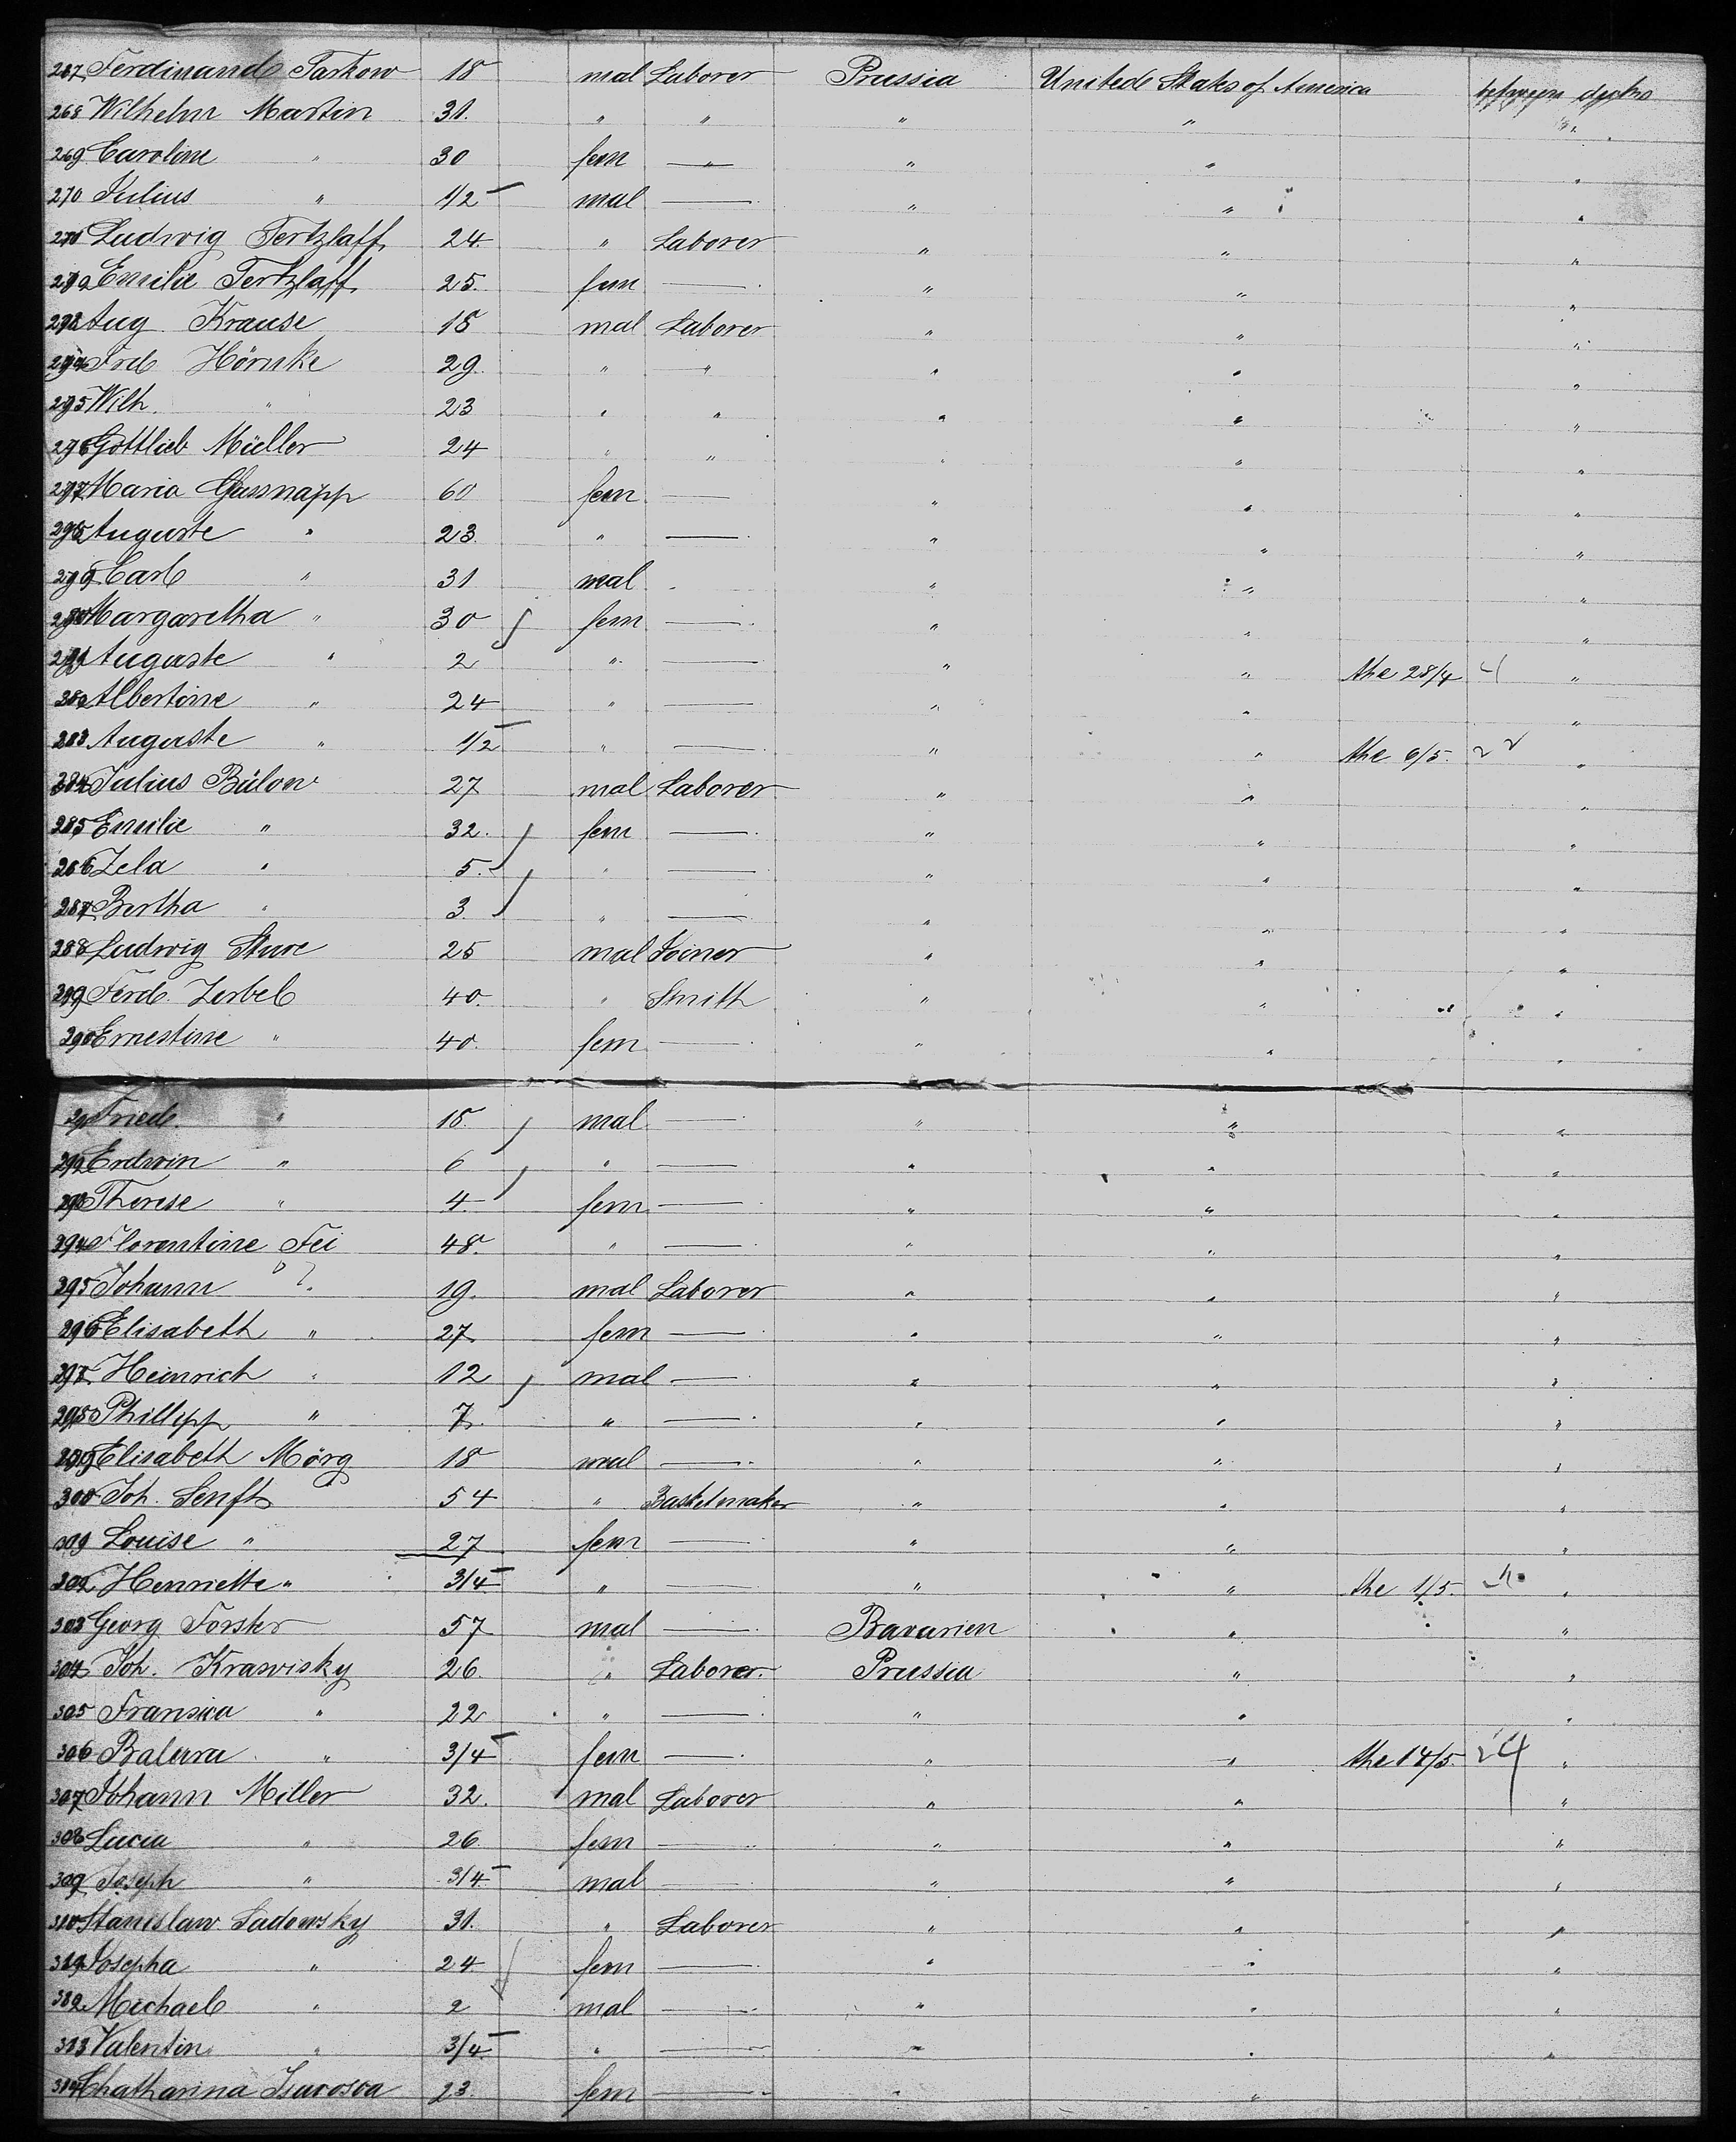 267 Ferdinand Tarkow 18 mal Laborer Prussia Unitede Staks of America between decks
268 Wilhelm Martin 31. " " " " "
269 Caroline " 30 fem — " — " " "
270 Julius " 1/2 mal — " " "
271 Ludwig Tertzlaff 24. " Laborer " " "
272 Emilie Tertzlaff 25. fem — " " "
273 Aug. Krause 18 mal Laborer " " "
274 Fred Hörnke 29. " " " " "
275 Wilh. " 23 " " " " "
276 Gottlieb Müller 24 " " " " "
277 Maria Gassnapp 60 fem — " " "
278 Auguste " 23 " — " " "
279 Carl " 31 mal " " " "
280 Margaretha " 30 fem — " " "
281 Auguste " 2 " — " " the 28/4 "
282 Albertine " 24 " — " " "
283 Auguste " 1/2 " — " " the 6/5. "
284 Julius Bülow 27 mal Laborer " " "
285 Emilie " 32. fem — " " "
286 Zela " 5. " — " " "
287 Bertha " 3. " — " " "
288 Ludwig Sture 25 mal Joiner " " "
289 Ferd. Zerbel 40. " Smith " " "
290 Ernestine " 40. fem — " " "
291 Fried. " 18. mal — " " "
292 Erdwin " 6 " — " " "
293 Therese " 4. fem — " " "
294 Florentine Fei 48. " — " " "
295 Johann " 19. mal Laborer " " "
296 Elisabeth " 27. fem — " " "
297 Heinrich " 12 mal — " " "
298 Phillipp " 7. " — " " "
299 Elisabeth Mörg 18 mal — " " "
300 Joh. Senft 54 " Basketmaker " " "
301 Louise " 27 fem — " " "
302 Henriette " 3/4 " — " " the 1/5. "
303 Georg Forster 57 mal — Bavarien " "
304 Joh. Krawisky 26. " Laborer. Prussia " "
305 Fransica " 22 " — " " "
306 Balura " 3/4 fem — " " the 14/5. 24 "
307 Johann Miller 32. mal Laborer " " "
308 Lucia " 26. fem — " " "
309 Joseph " 3/4 mal — " " "
310 Stanislaw Sadowsky 31. " Laborer " " "
311 Josepha " 24 fem — " " "
312 Michael " 2 mal — " " "
313 Valentin " 3/4 " — " " "
314 Chatharina 23. fem — " "